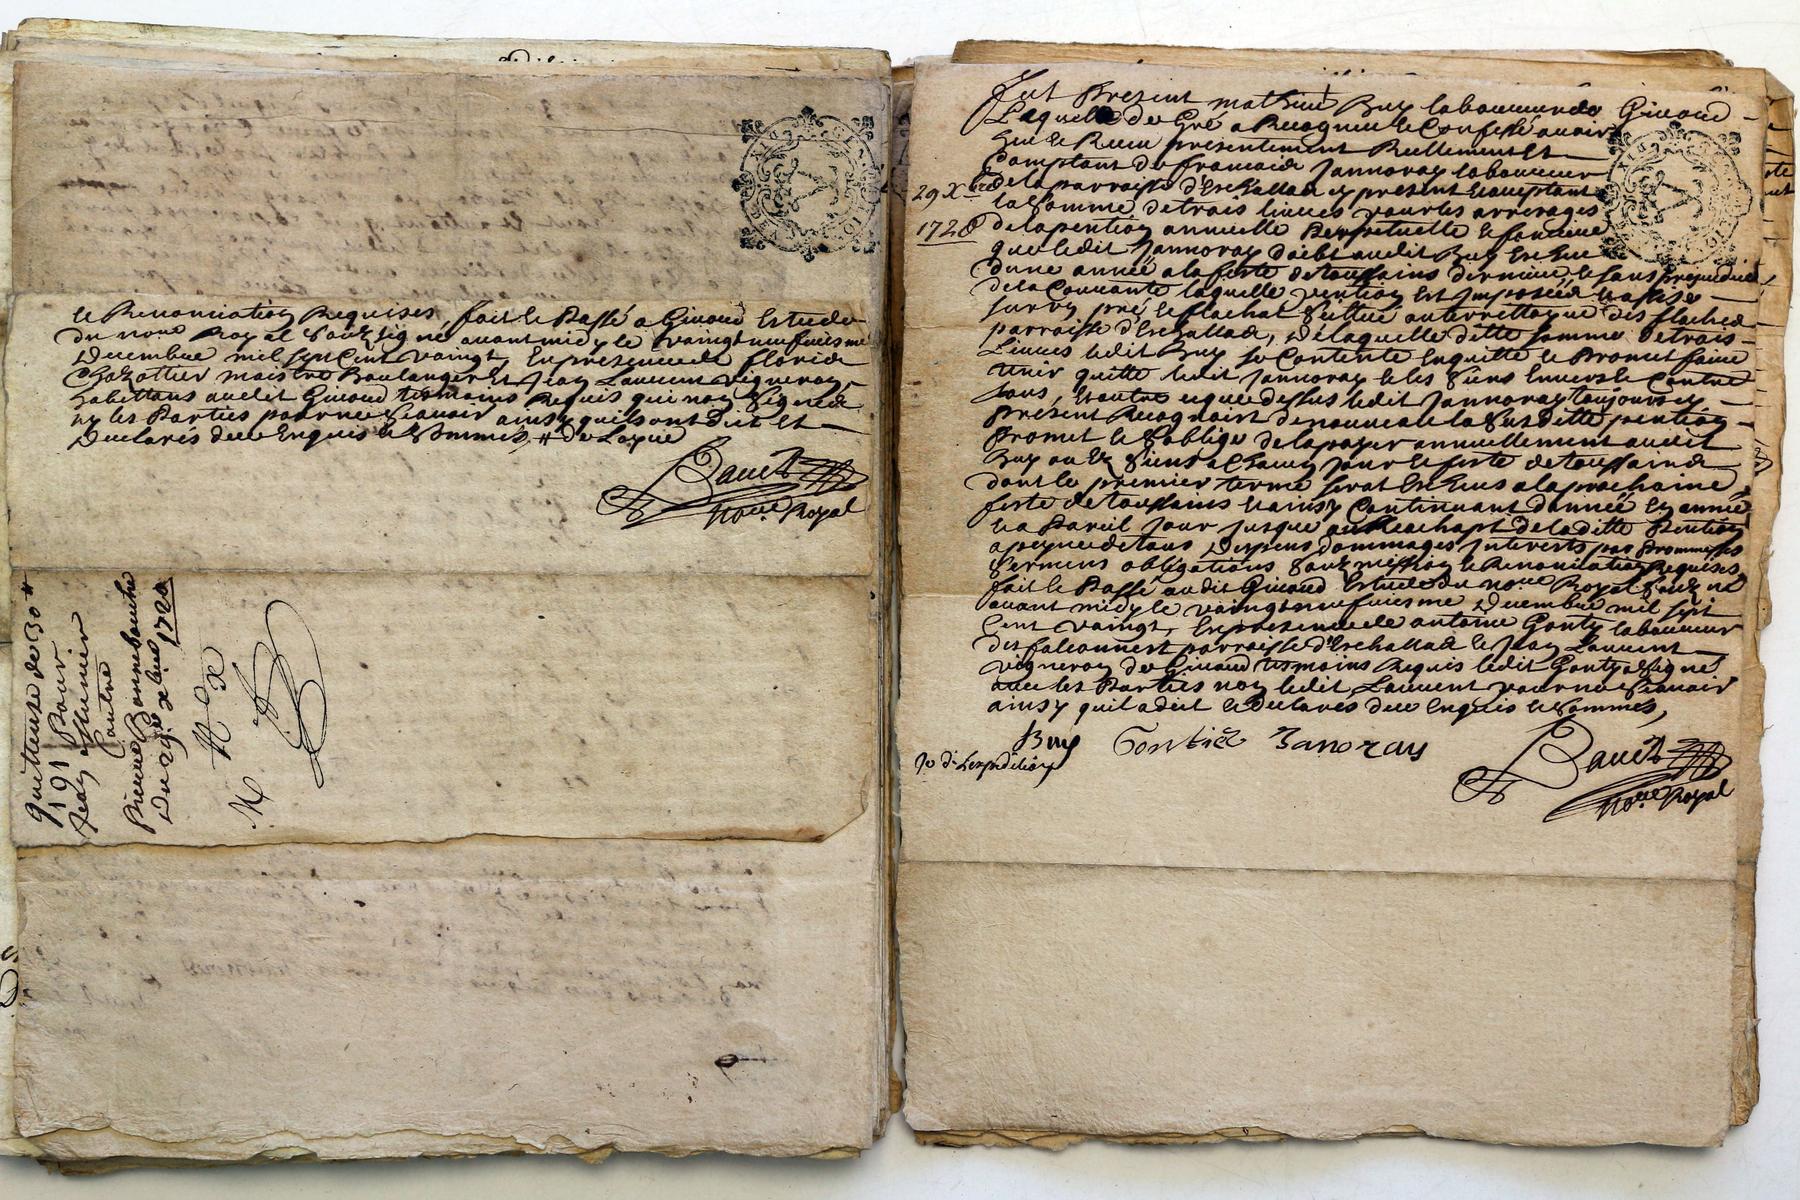 et Renonciation Requises, fait et Passé a Givord Estude
du no.re Royal soubzsigné avant midy le vaingtneufuiesme
Decembre mil sept Cent vaingt, En presence de
Chazottier maistre Boulanger Et Jean Laurent vigneron
habittans audit Givord tesmoins Requis qui non signé
ny les Parties pour ne scavoir ainsy quils ont dit et
declarés de ce Enquis et sommés,
no.re Royal
quittance de 30
Pour
Jean
Contre
Pierre Bonnebouche
Du 29.e xbre 1720
fut Present mathieu Buy laboureur de Givord
Lequel de Gré a Recogneu et Confessé avoir
heu et Receu presentement Reellement Et
Comptant de francois Jannoray laboureur
de la parroisse d'Eschallad cy present Et acceptant
la somme de trois livres pour les arrerages
de la pention annuelle Perpetuelle et fonciere
que ledit Jannoray doibt audit Buy Escheue
dune année a la feste de toussains derniere, et sans prejudice
de la Courante laquelle pention Est Imposée Et assise
sur un pré et flachat scittué au territtoire des flaches
parroisse d'Eschallad, de laquelle ditte somme de trois
Livres ledit Buy se Contente En quitte et Promet faire
tenir quitte ledit Jannoray et les siens Envers et Contre
tous, Et outre ce que dessus ledit Jannoray toujours cy
present Recognoist de nouveau la susditte pention
Promet et soblige de la payer annuellement audit
Buy ou Ez siens a Chacun Jour et feste de toussains
dont le premier terme serat Escheus a la prochaine
feste de toussains Et ainsy Continuant dannée En année
Et a Pareil Jour Jusque au Reachapt de la ditte Pention
a peyne de tous despens dommages Interests par Promesses
sermens obligations soubzmission et Renonciation Requises
fait et Passé audit Givord Estude du no.re Royal soubz né
avant midy le vaingtneufuiesme Decembre mil sept
Cent vaingt, En presence de antoine Gonty laboureur
des falconnest parroisse d'Eschallad et Jean Laurent
vigneron de Givord tesmoins Requis ledit Gonty a signé
avec les Parties non ledit Laurent pour ne scavoir
ainsy quil a dit et declarés de ce Enquis et sommés,
29 Xbre
1720
Buy Janoray
no.re Royal